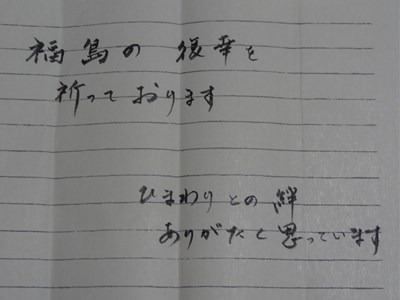 福島の復幸を
祈っております
ひまわりとの絆
ありがたく思っています